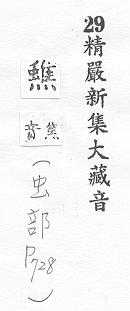 29精嚴新集大藏音
蟭
音焦
(虫部P.728)